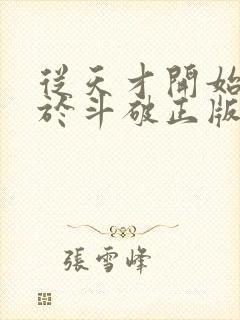 從天才開始
於斗破正版
張雪峰